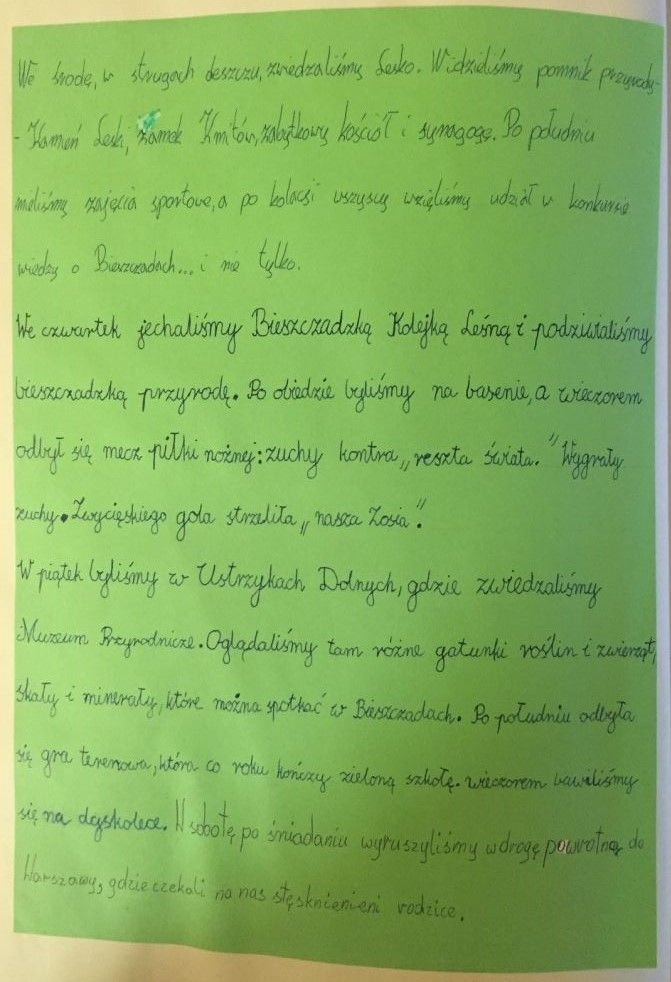 We środę, w strugach deszczu, zwiedzaliśmy Lesko. Widzieliśmy pomnik przyrody-
- Kamień Leski, zamek Kmitów, zabytkowy kościół i synagogę. Po południu
mieliśmy zajęcia sportowe, a po kolacji wszyscy wzięliśmy udział w konkursie
wiedzy o Bieszczadach... i nie tylko.
We czwartek jechaliśmy Bieszczadzką Kolejką Leśną i podziwialiśmy
bieszczadzką przyrodę. Po obiedzie byliśmy na basenie, a wieczorem
odbył się mecz piłki nożnej: zuchy kontra „reszta świata." Wygrały
zuchy. Zwycięskiego gola strzeliła „nasza Zosia".
W piątek byliśmy w Ustrzykach Dolnych, gdzie zwiedzaliśmy
Muzeum Przyrodnicze. Oglądaliśmy tam różne gatunki roślin i zwierząt,
skały i minerały, które można spotkać w Bieszczadach. Po południu odbyła
się gra terenowa, która co roku kończy zieloną szkołę. wieczorem bawiliśmy
się na dyskotece. W sobotę po śniadaniu wyruszyliśmy w drogę powrotną do
Warszawy, gdzie czekali na nas stęsknienieni rodzice.